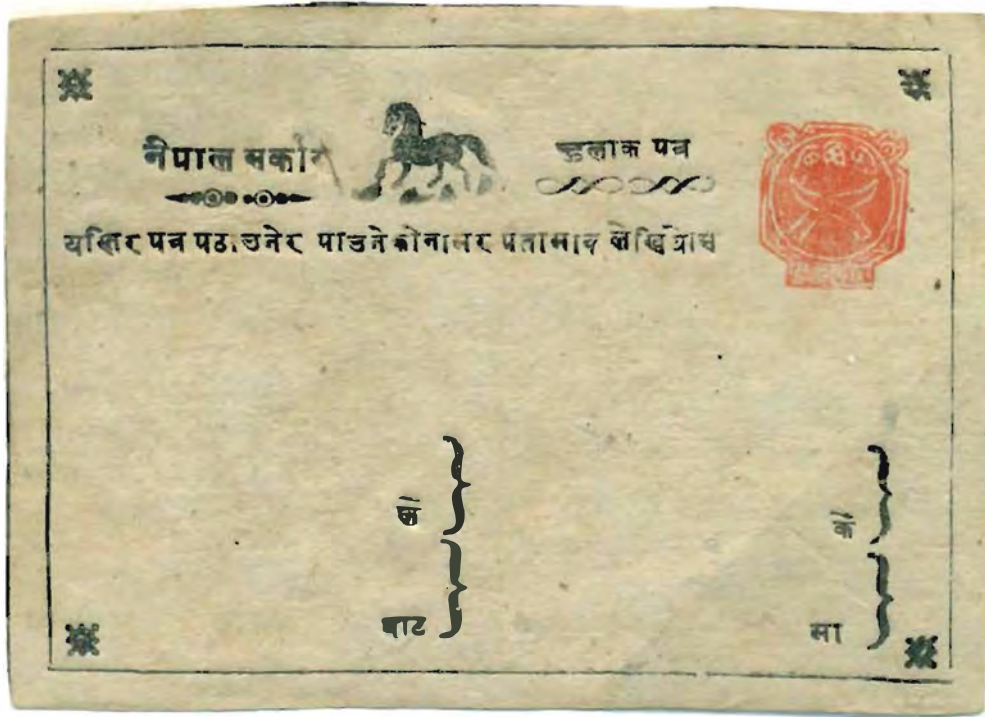 नेपाल सर्कार
हुलाक पत्र
यस्तिर पत्र पठाउनेर पाउनेकोनामर पतामात्र लेखिन्याछ
को
बाट
को
मा